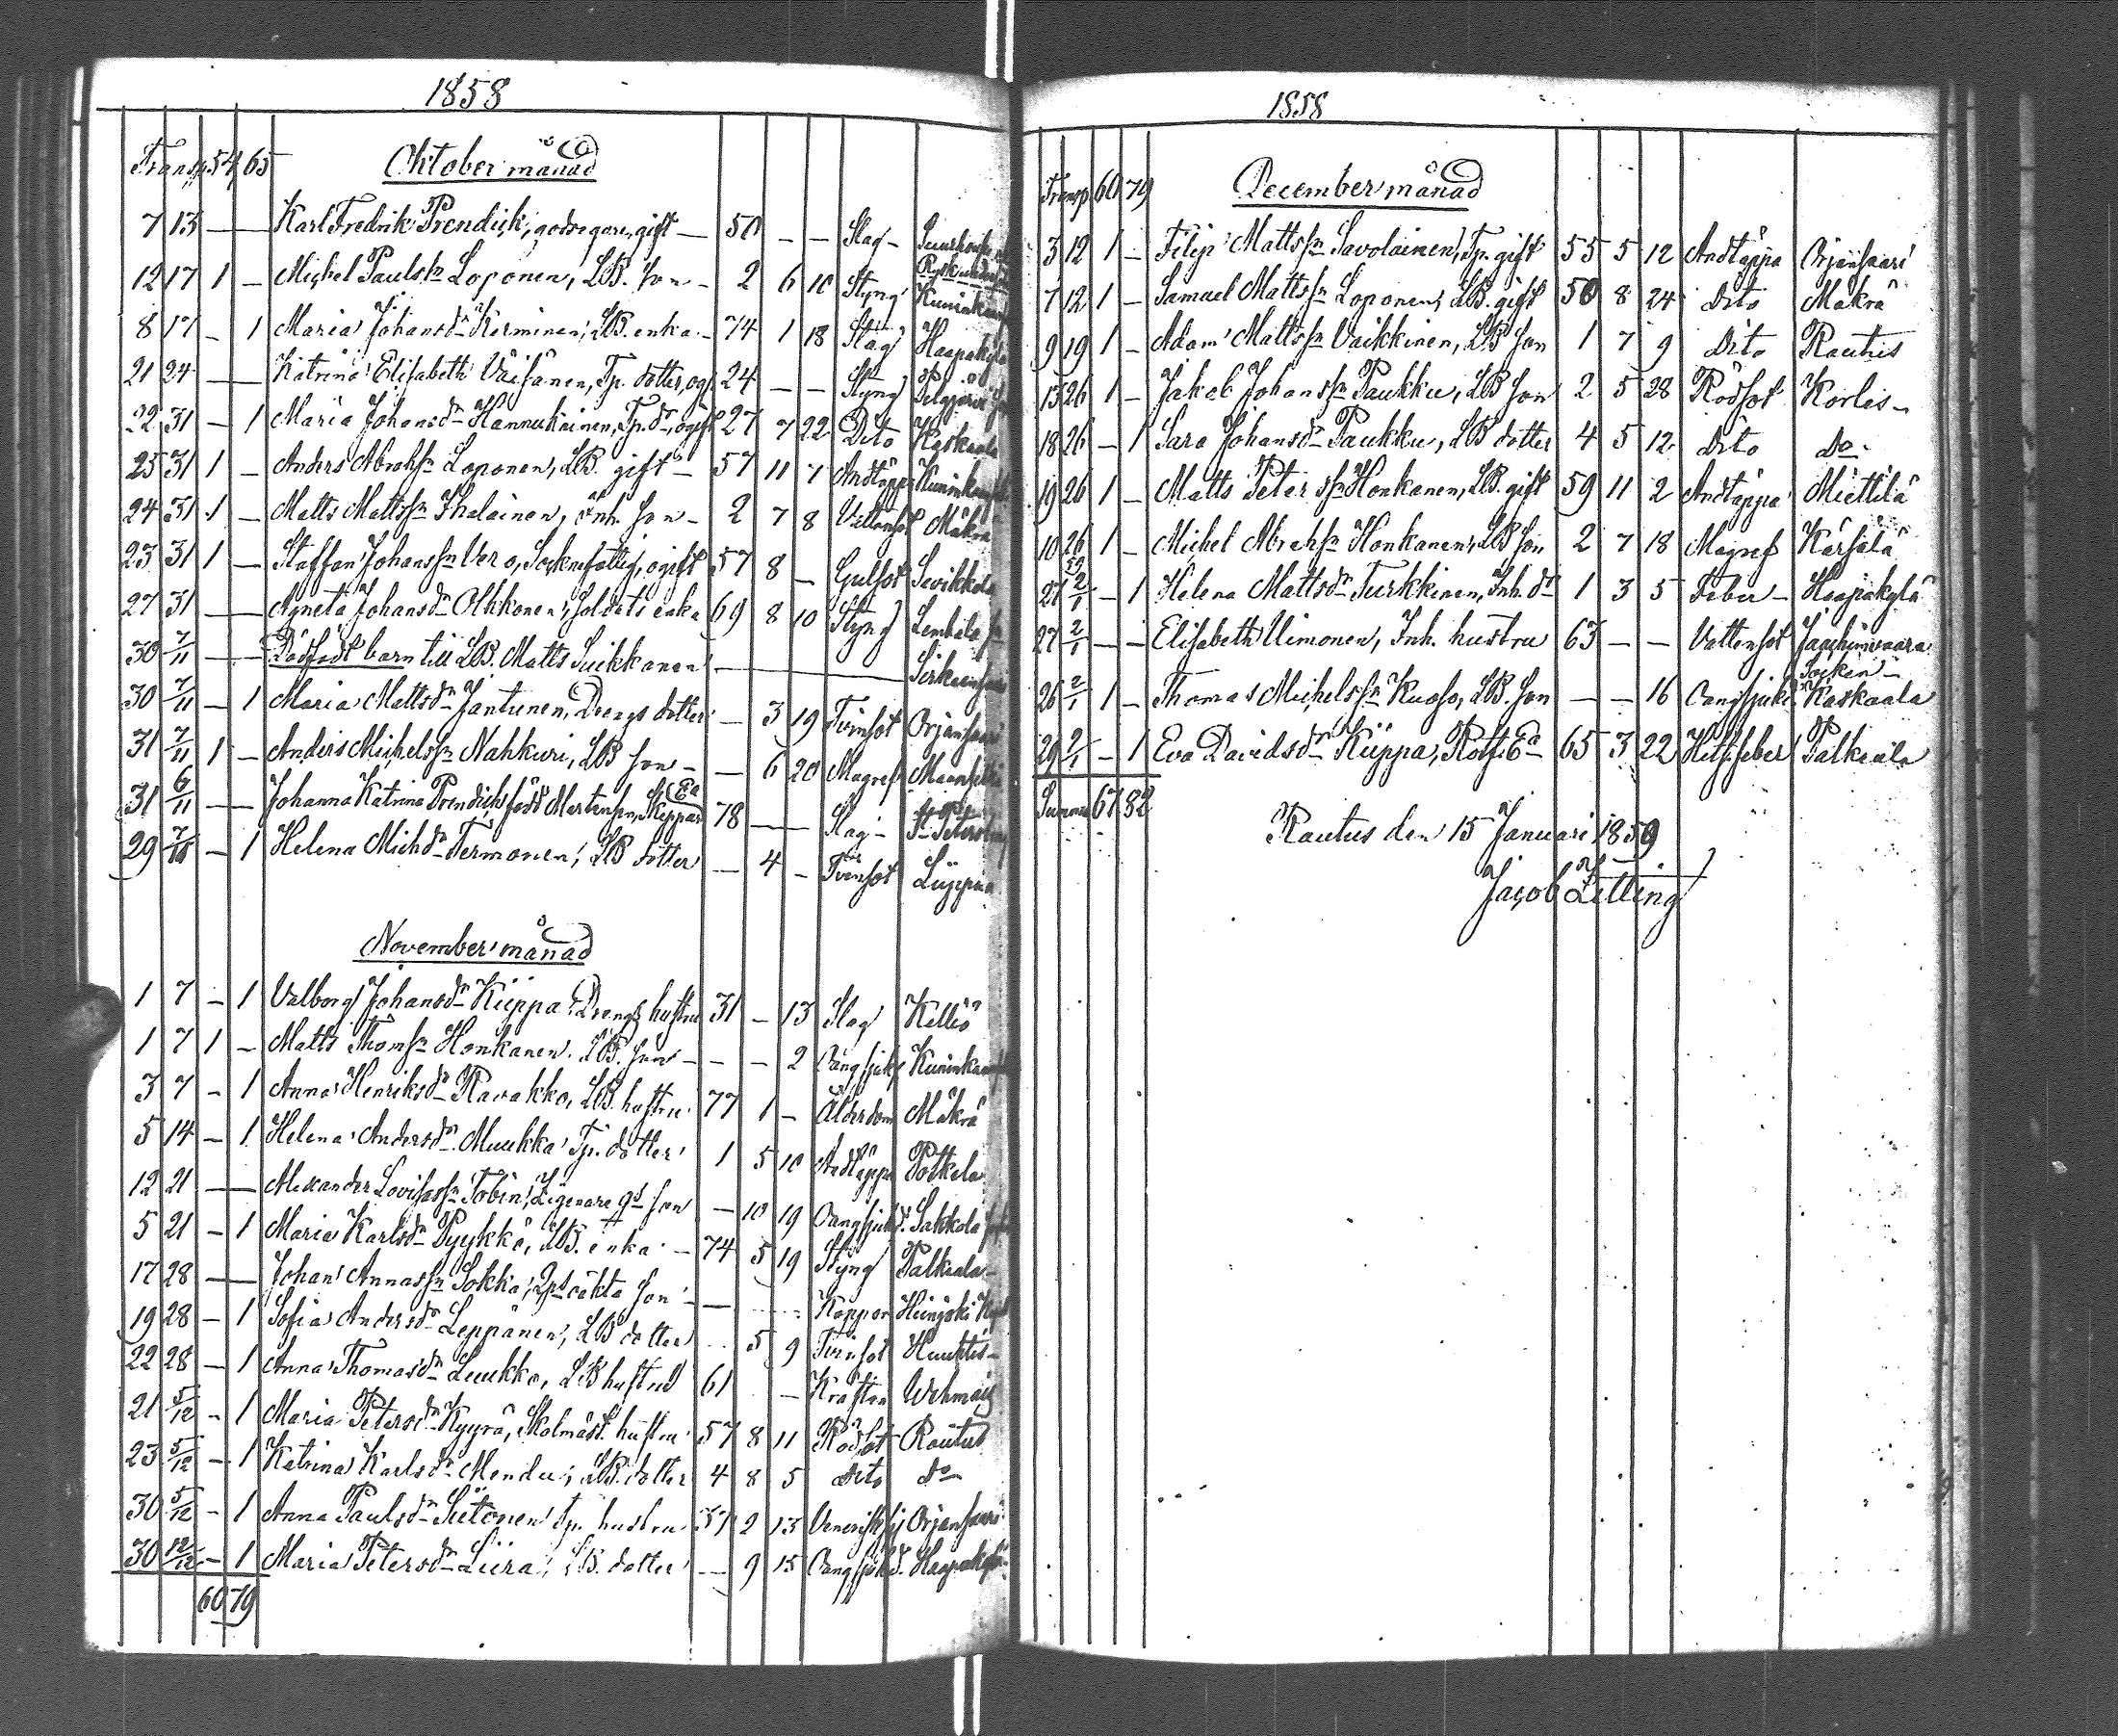 1858
Transp. 54 65 Oktober månad
7 13 — — Karl Fredrik Prendick, godsegare, gift — 50 — — Slag —
12 17 1 — Michel Paulssn Loponen, LB. son — 2 6 10 Styng
8 17 — 1 Maria Johansdr Kerminen, LB. enka — 74 1 18 Slag Haapakylä
21 24 — — Katrina Elisabeth Väisänen, Tp. dotter, og. 24 — — Styng
22 31 — 1 Maria Johansdr Hannukainen, Tp. dr, ogift 27 7 22 Dito Kaskaala
25 31 1 — Anders Abrahsn Loponen, LB. gift — 57 11 7 Andtäppa
24 31 1 — Matts Mattssn Ihalainen, Inh. son — 2 7 8 Vattensot Mäkrä
23 31 1 — Staffan Johanssn Vero, Socknefattig, ogift 57 8 — Gulsot
27 31 — — Agneta Johansdr Olkkonen, Soldats enka 69 8 10 Styng
30 7/11 — — Dödfödt barn till LB. Matts Suikkanen —
30 7/11 — 1 Maria Mattsdr Jantunen, Drengs dotter — 3 19 Tvinsot Orjansaari
31 7/11 1 — Anders Michelssn Nahkuri, LB son — — 6 20 Magref
31 6/11 — — Johanna Katrina Prendick, född Mortensen, Skeppar Ea 78 — — Slag — St Petersburg
29 7/11 — 1 Helena Michdr Termonen, LB dotter — 4 — Tvinsot
November månad
1 7 — 1 Valborg Johansdr Kiippa, Drengs hustru 31 — 13 Slag
1 7 1 — Matts Thomsn Honkanen, LB. son — — — 2 Bangsjuka
3 7 — 1 Anna Henriksdr Ravakko, LB. hustru 77 1 — Ålderdom Mäkrä
5 14 — 1 Helena Andersdr Muukka, Tp. dotter 1 5 10 Andtäppa Potkela
12 21 — — Alexander Lovisassn Tobin, son — 10 19 Bangsjukd. Sakkola
5 21 — 1 Maria Karlsdr Pyykkö, LB. enka — 74 5 19 Styng Palkeala —
17 28 — — Johan Annassn Sokka, oäkta son — — Koppor
19 28 — 1 Sofia Andersdr Leppänen, LB dotter 5 9 Tvinsot Huuhtis —
22 28 — 1 Anna Thomasdr Luukka, LB hustru 61 —
21 5/12 — 1 Maria Petersdr Kyyrä, Skolmäst. hustru 57 8 11 Rödsot Rautus
23 5/12 — 1 Katrina Karlsdr Mendu, LB. dotter 4 8 5 Dito Do
30 5/12 — 1 Anna Paulsdr Siitonen Tp. hustru 57 2 13 Venerisk sj Orjansaari
30 12/12 — 1 Maria Petersdr Liira, LB. dotter — 9 15 Bangsjukd. Haapakylä
60 79
1858
Transp. 60 79 December månad
3 12 1 — Filip Mattssn Savolainen, Tp. gift 55 5 12 Andtäppa Orjansaari
7 12 1 — Samuel Mattssn Loponen, LB. gift 50 8 24 Dito Mäkrä
9 19 1 — Adam Mattssn Vaikkinen, LB son 1 7 9 Dito Rautus
13 26 1 — Jakob Johanssn Paukku, LB son 2 5 28 Rödsot Korlis —
18 26 — 1 Sara Johansdr Paukku, LB dotter 4 5 12 Dito Do.
19 26 1 — Matts Peterssn Honkanen, LB. gift 59 11 2 Andtäppa Miettilä
10 26 1 — Michel Abrahsn Honkanen, LB son 2 7 18 Magref Kärsälä
59
27 2/1 — 1 Helena Mattsdr Turkkinen, Inh. dr 1 3 5 Feber — Haapakylä
27 2/1 — — Elisabeth Uimonen, Inh. hustru 63 — — Vattensot Jaakimvaara
Socken —
26 2/1 1 — Thomas Michelssn Kuosa, LB. son — — 16 Bangsjuka Kaskaala
29 2/1 — 1 Eva Davidsdr Kiippa, Rotf. Ea 65 3 22 Hets. feber Palkeala
Summa 67 82
Rautus den 15 Januari 1859
Jacob Zitting